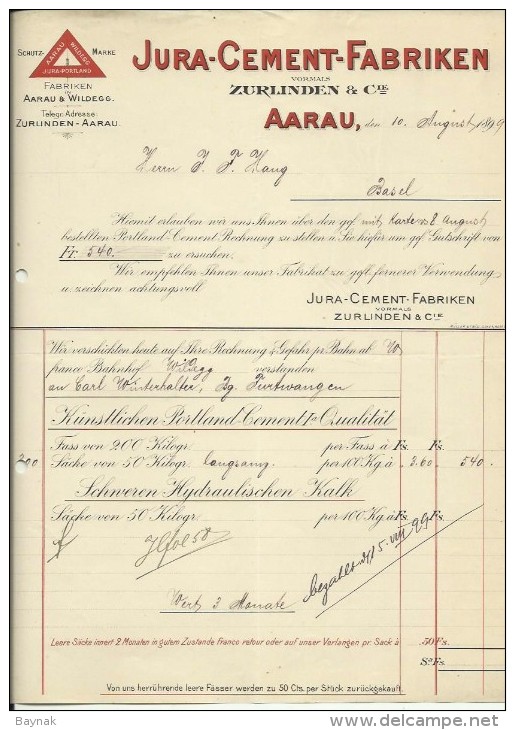 SCHUTZ- MARKE
AARAU WILDEGG
JURA-PORTLAND
FABRIKEN
IN
AARAU & WILDEGG.
Telegr. Adresse:
ZURLINDEN-AARAU.
JURA-CEMENT-FABRIKEN
VORMALS
ZURLINDEN & CIE.
AARAU, den 10. August 1899
Herrn J. F. Haug
Basel
Hiemit erlauben wir uns Ihnen über den gefl. mit Karte v. 8 August
bestellten Portland-Cement Rechnung zu stellen u. Sie hiefür um gefl. Gutschrift von
Fr. 540. zu ersuchen.
Wir empfehlen Ihnen unser Fabrikat zu gefl. fernerer Verwendung
u. zeichnen achtungsvoll
JURA-CEMENT-FABRIKEN
VORMALS
ZURLINDEN & CIE.
Wir verschickten heute auf Ihre Rechnung & Gefahr pr. Bahn ab W
franco Bahnhof Wildegg verstanden
an Carl Winterhalter, Bg. Furtwangen
Künstlichen Portland-Cement Ia Qualität
Fass von 200 Kilogr. per Fass à Fs.
300 Säcke von 50 Kilogr. langsamg. per 100 Kg. à 3.60 540.
Schweren Hydraulischen Kalk
Säcke von 50 Kilogr. per 100 Kg. à Fs.
bezahlt d/15. VIII 99
Wert 3 Monate
Leere Säcke innert 2 Monaten in gutem Zustande franco retour oder auf unser Verlangen pr. Sack à 50 Fs.
Sa Fs.
Von uns herrührende leere Fässer werden zu 50 Cts. per Stück zurückgekauft.
Baynak
www.delcampe.net